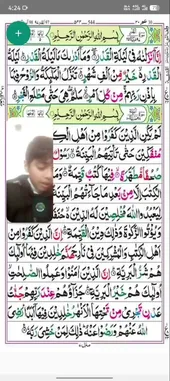 4:24
بِسْمِ اللهِ الرَّحْمٰنِ الرَّحِيْمِ
اِنَّاۤ اَنْزَلْنٰهُ فِيْ لَيْلَةِ الْقَدْرِ وَمَاۤ اَدْرٰىكَ مَا لَيْلَةُ الْقَدْرِ لَيْلَةُ
الْقَدْرِ خَيْرٌ مِّنْ اَلْفِ شَهْرٍ تَنَزَّلُ الْمَلٰٓئِكَةُ وَالرُّوْحُ فِيْهَا
بِاِذْنِ رَبِّهِمْ مِّنْ كُلِّ اَمْرٍ سَلٰمٌ هِيَ حَتّٰى مَطْلَعِ الْفَجْرِ
بِسْمِ اللهِ الرَّحْمٰنِ الرَّحِيْمِ
لَمْ يَكُنِ الَّذِيْنَ كَفَرُوْا مِنْ اَهْلِ
مُنْفَكِّيْنَ حَتّٰى تَاْتِيَهُمُ الْبَيِّنَةُ رَسُوْلٌ
صُحُفًا مُّطَهَّرَةً فِيْهَا كُتُبٌ قَيِّمَةٌ
الْكِتٰبَ اِلَّا مِنْۢ بَعْدِ مَا جَآءَتْهُمُ الْبَيِّنَةُ
لِيَعْبُدُوا اللهَ مُخْلِصِيْنَ لَهُ الدِّيْنَ
وَيُؤْتُوا الزَّكٰوةَ وَذٰلِكَ دِيْنُ الْقَيِّمَةِ اِنَّ الَّذِيْنَ كَفَرُوْا مِنْ
اَهْلِ الْكِتٰبِ وَالْمُشْرِكِيْنَ فِيْ نَارِ جَهَنَّمَ خٰلِدِيْنَ فِيْهَا اُولٰٓئِكَ
هُمْ شَرُّ الْبَرِيَّةِ اِنَّ الَّذِيْنَ اٰمَنُوْا وَعَمِلُوا الصّٰلِحٰتِ
اُولٰٓئِكَ هُمْ خَيْرُ الْبَرِيَّةِ جَزَآؤُهُمْ عِنْدَ رَبِّهِمْ جَنّٰتُ
عَدْنٍ تَجْرِيْ مِنْ تَحْتِهَا الْاَنْهٰرُ خٰلِدِيْنَ فِيْهَاۤ اَبَدًا رَضِيَ
اللهُ عَنْهُمْ وَرَضُوْا عَنْهُ ذٰلِكَ لِمَنْ خَشِيَ رَبَّهٗ